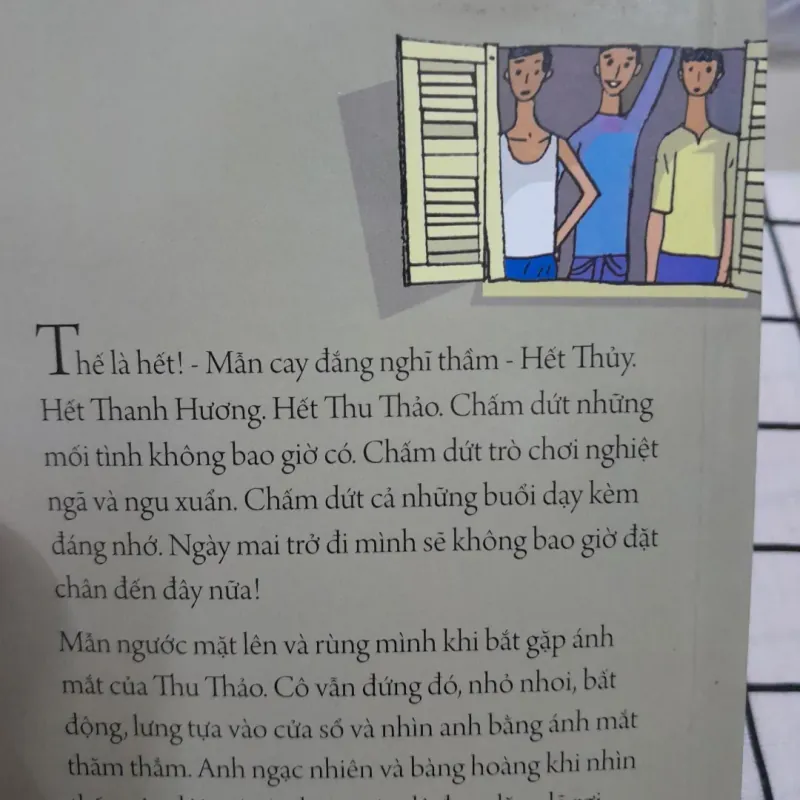 Thế là hết! - Mẫn cay đắng nghĩ thầm - Hết Thủy.
Hết Thanh Hương. Hết Thu Thảo. Chấm dứt những
mối tình không bao giờ có. Chấm dứt trò chơi nghiệt
ngã và ngu xuẩn. Chấm dứt cả những buổi dạy kèm
đáng nhớ. Ngày mai trở đi mình sẽ không bao giờ đặt
chân đến đây nữa!
Mẫn ngước mặt lên và rùng mình khi bắt gặp ánh
mắt của Thu Thảo. Cô vẫn đứng đó, nhỏ nhoi, bất
động, lưng tựa vào cửa sổ và nhìn anh bằng ánh mắt
thăm thẳm. Anh ngạc nhiên và bàng hoàng khi nhìn